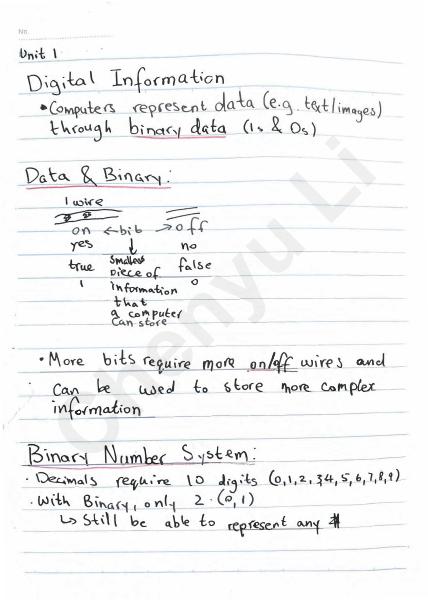 No.
Unit 1
Digital Information
• Computers represent data (e.g. text/images)
through binary data (1s & 0s)
Data & Binary:
1 wire
on ← bit → off
yes no
true smallest false
1 piece of 0
information
that
a computer
can store
• More bits require more on/off wires and
can be used to store more complex
information
Binary Number System:
· Decimals require 10 digits (0,1,2,3,4,5,6,7,8,9)
· With Binary, only 2 · (0,1)
↳ Still be able to represent any #
Chenyu Li